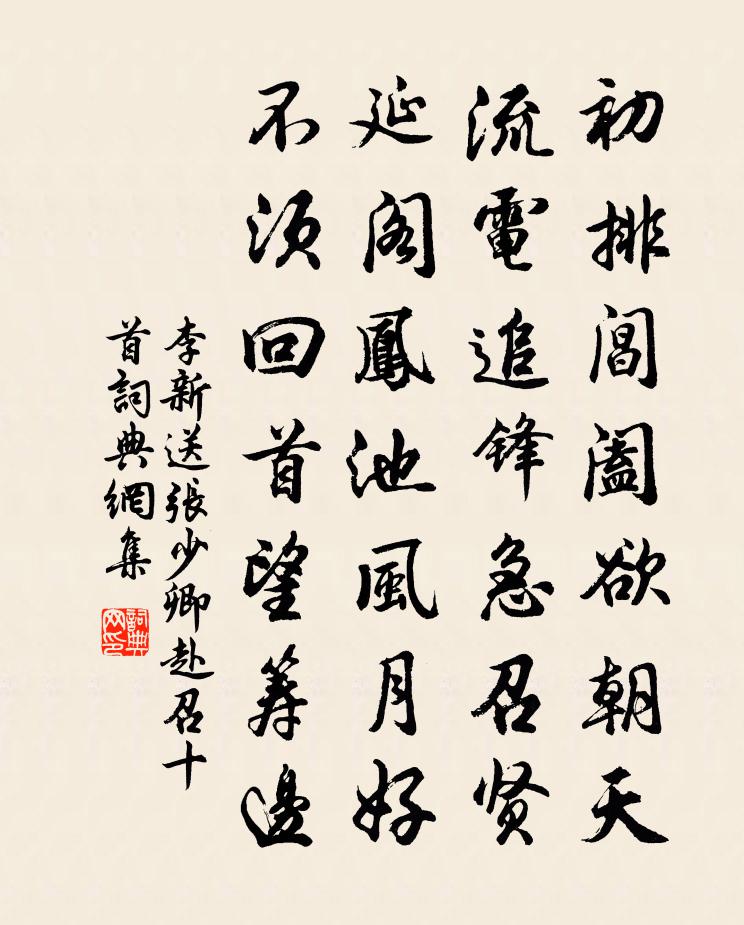 初排閶闔欲朝天
流電追鋒急召贤
延閣鳳池風月好
不須回首望筹邊
李新送張少卿赴召十
首詞典網集
詞典
网印